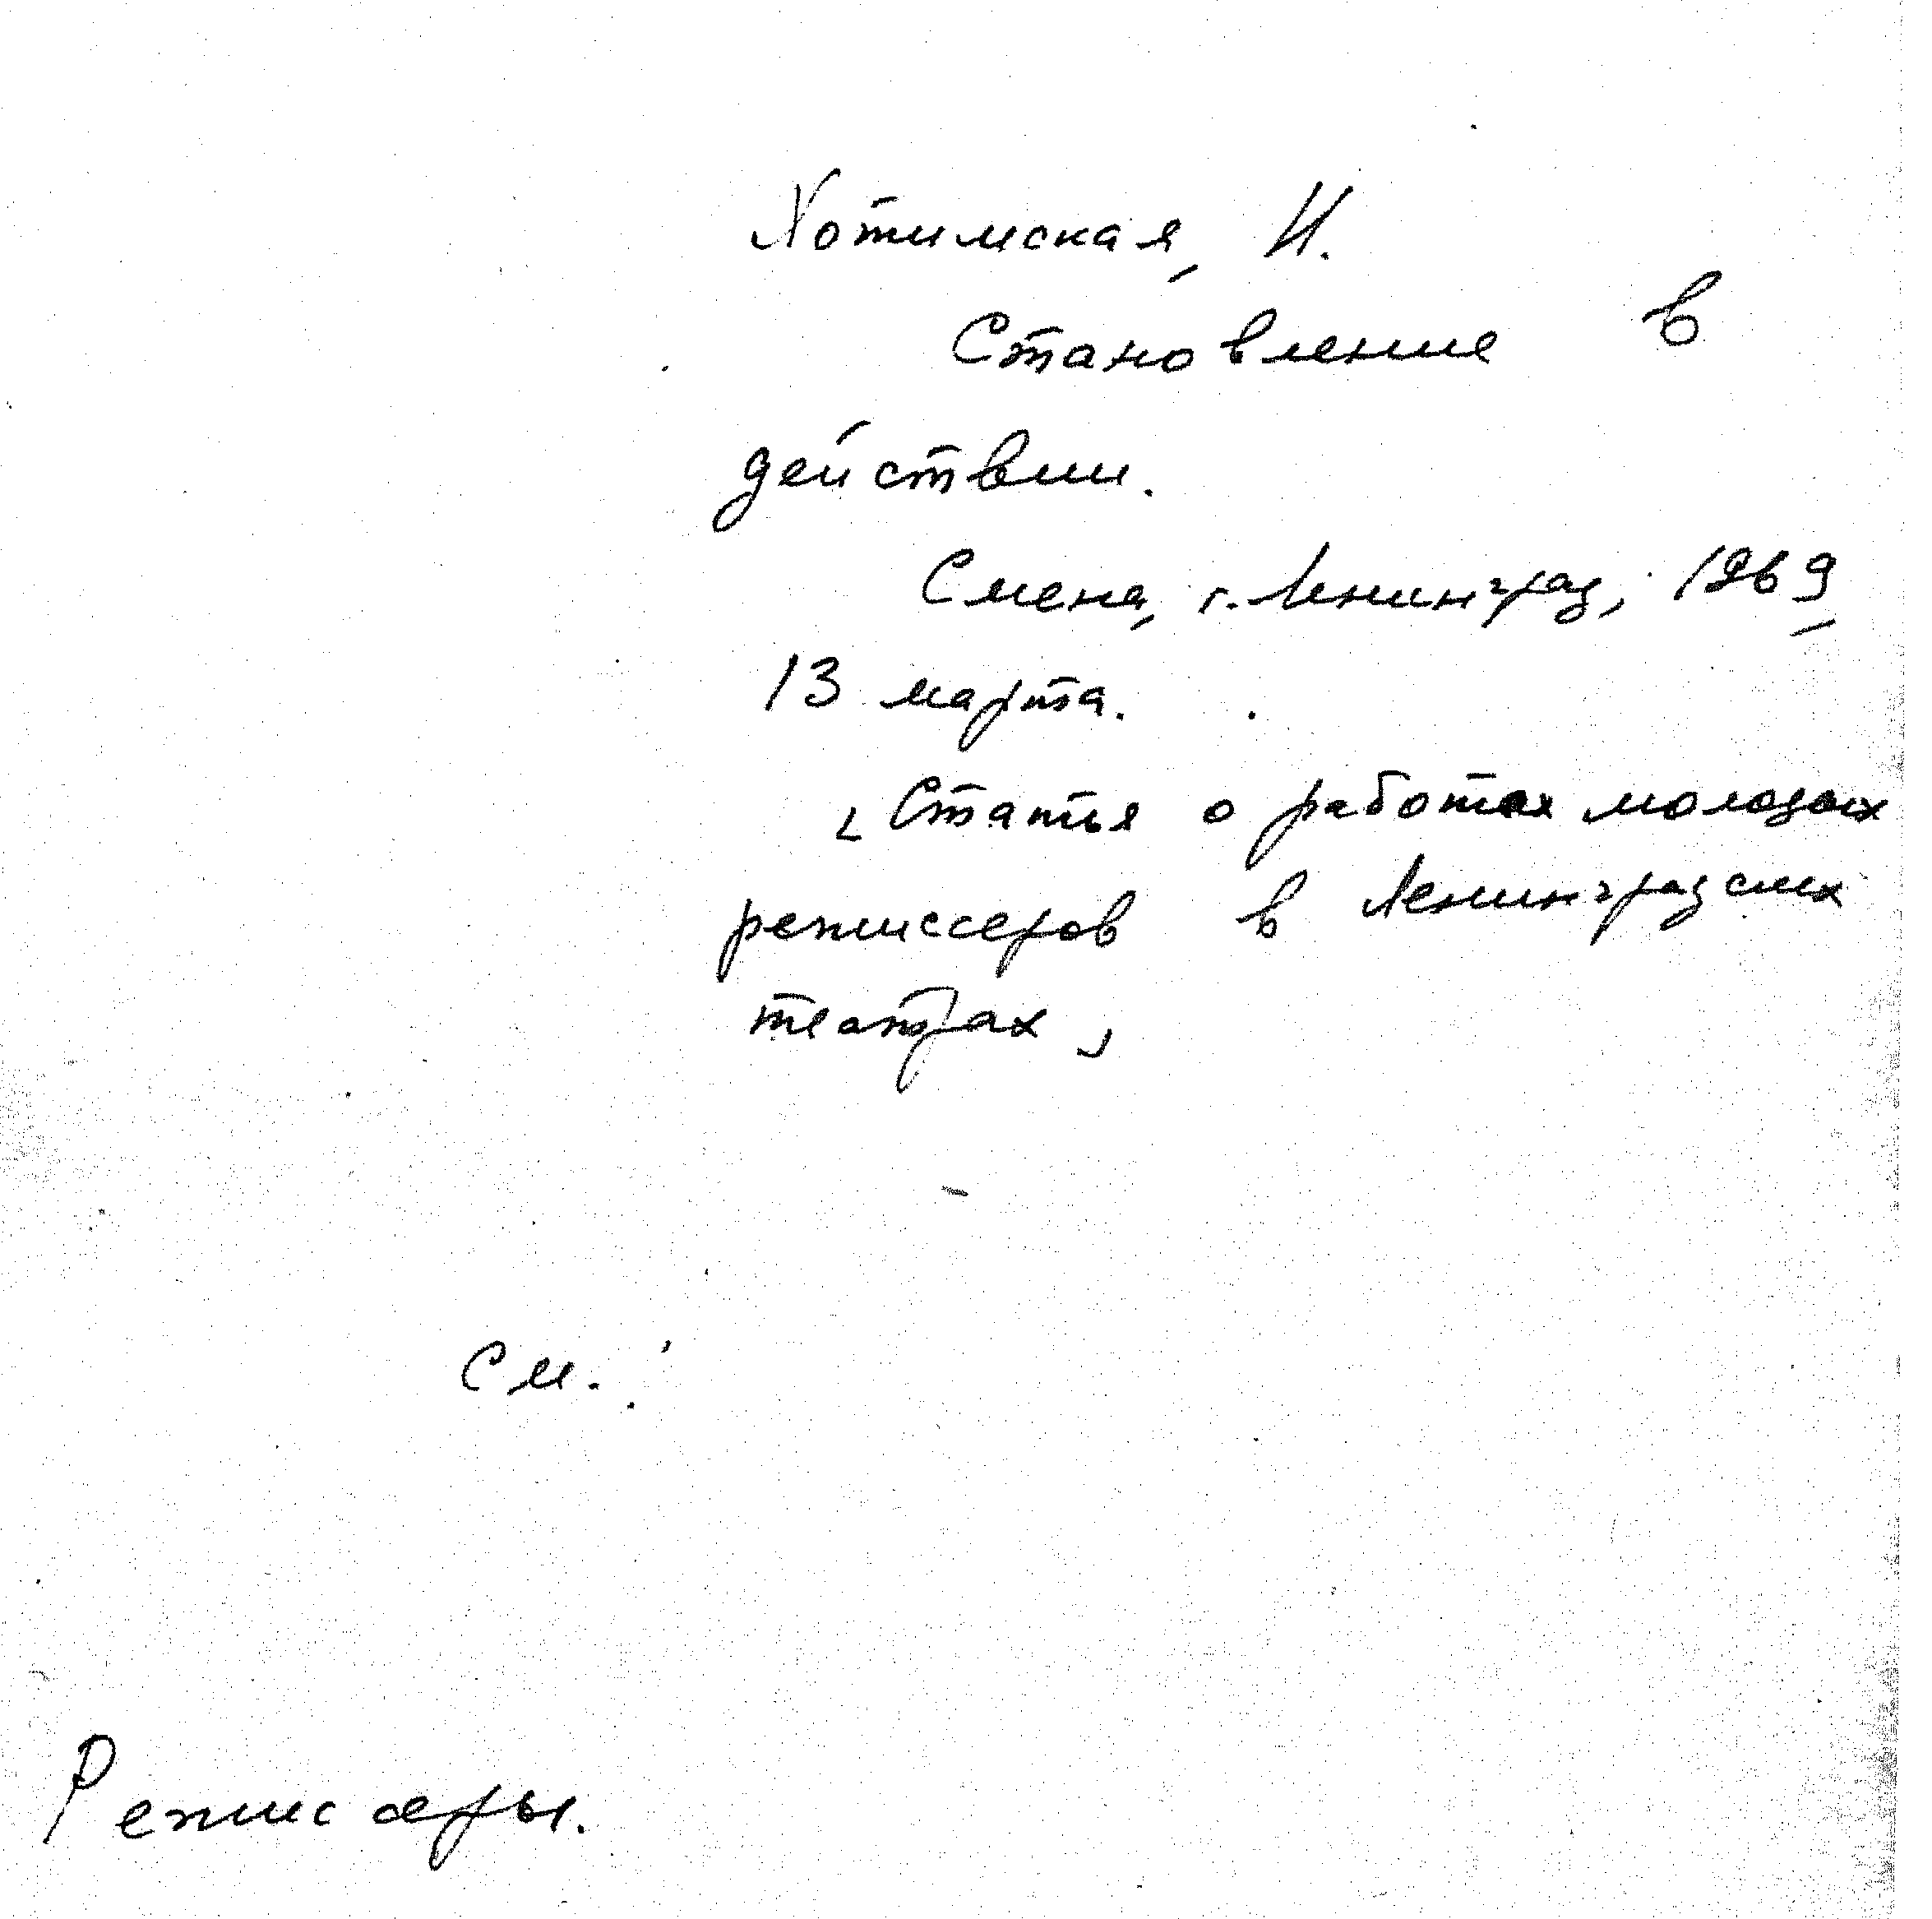 Хотимская, И.
Становление в
действии.
Смена, г. Ленинград, 1969,
13 марта.
[Статья о работах молодых
режиссеров в Ленинградских
театрах]
См.:
Режиссеры.